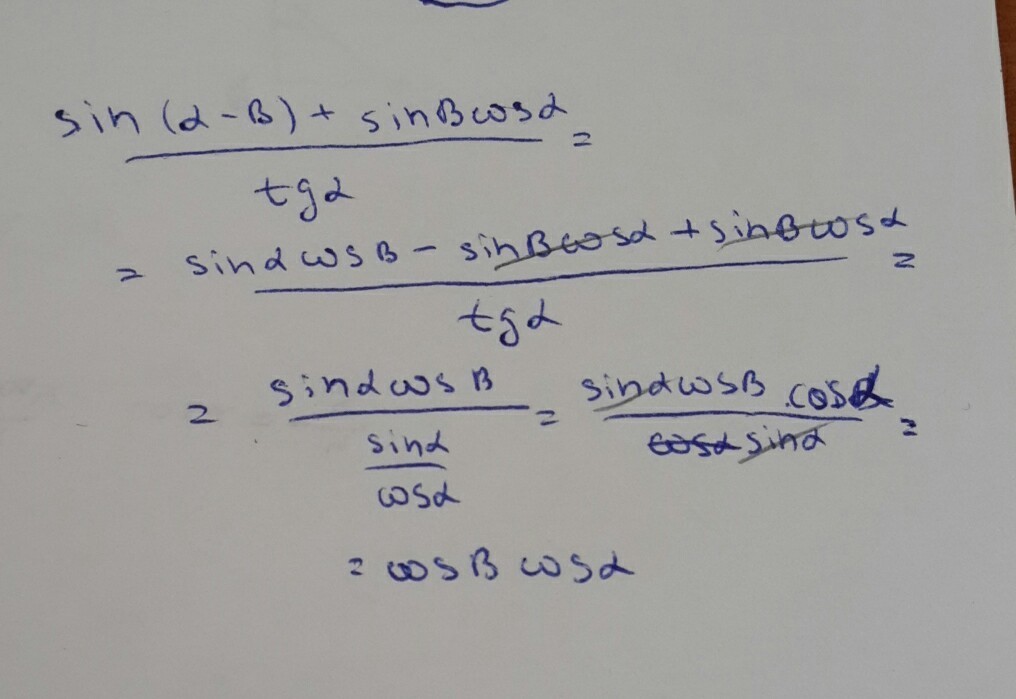 sin (α - β) + sinβ cosα =
tgα
= sinα cosβ - sinβcosα + sinβcosα =
tgα
= sinα cosβ = sinα cosβ · cosα =
sinα cosα sinα
cosα
= cosβ cosα